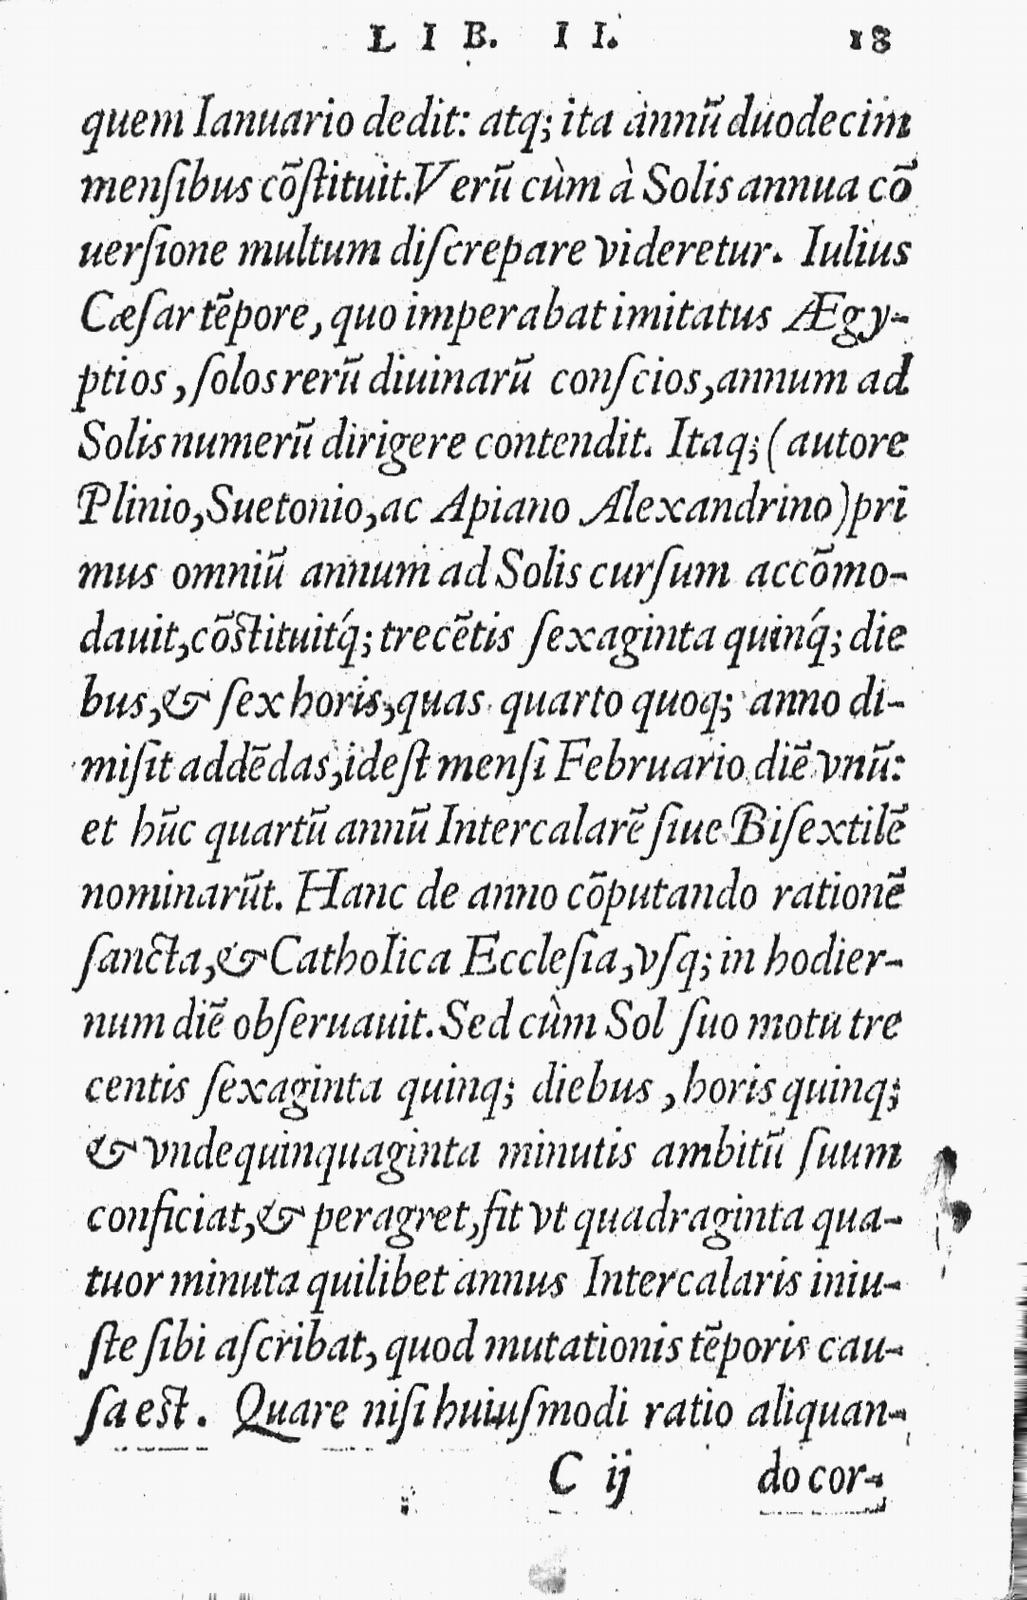 LIB. II. 18
quem Ianuario dedit: atq; ita annũ duodecim
menſibus cõſtituit. Verũ cùm à Solis annua cõ
uerſione multum diſcrepare videretur. Iulius
Cæſar tẽpore, quo imperabat imitatus Ægy-
ptios, ſolos rerũ diuinarũ conſcios, annum ad
Solis numerũ dirigere contendit. Itaq; (autore
Plinio, Suetonio, ac Apiano Alexandrino) pri
mus omniũ annum ad Solis curſum accõmo-
dauit, cõſtituitq́; trecẽtis ſexaginta quinq́; die
bus, & ſex horis, quas quarto quoq; anno di-
miſit addẽdas, ideſt menſi Februario diẽ vnũ:
et hũc quartũ annũ Intercalarẽ ſiue Biſextilẽ
nominarũt. Hanc de anno cõputando rationẽ
ſancta, & Catholica Eccleſia, vſq; in hodier-
num diẽ obſeruauit. Sed cùm Sol ſuo motu tre
centis ſexaginta quinq; diebus, horis quinq;
& vndequinquaginta minutis ambitũ ſuum
conficiat, & peragret, fit vt quadraginta qua-
tuor minuta quilibet annus Intercalaris iniu-
ſte ſibi aſcribat, quod mutationis tẽporis cau-
ſa eſt. Quare niſi huiuſmodi ratio aliquan-
C ij do cor-